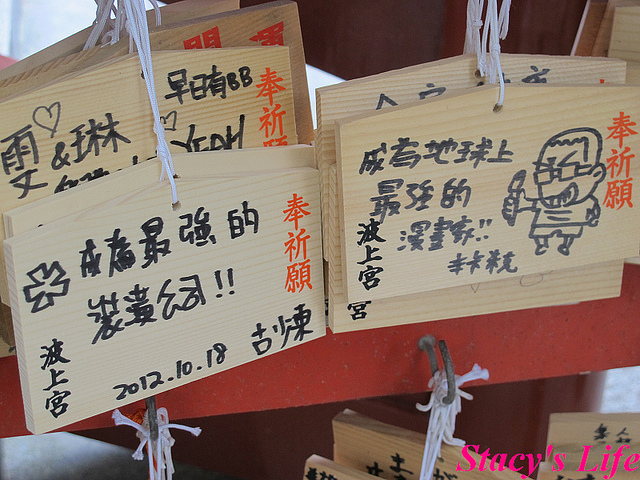 早日有BB
奉祈願
雯
&琳
YEAH
成為最強的
裝潢公司!!
2012.10.18
奉祈願
波上宮
成為地球上
最強的
漫畫家!!
奉祈願
波上宮
宮
Stacy's Life